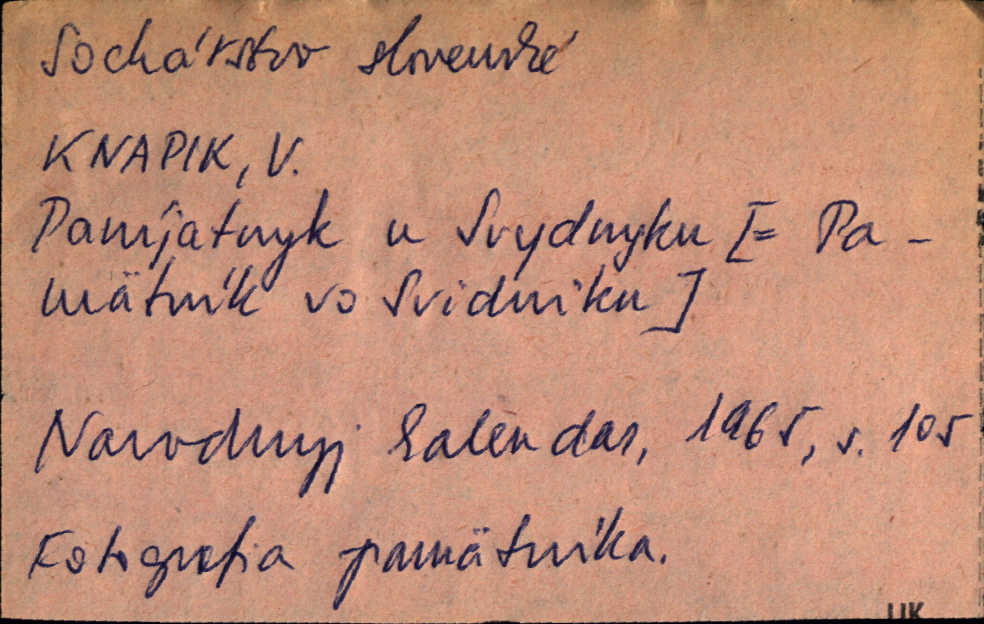 Sochárstvo slovenské
KNAPIK, V.
Pamjatnyk u Svydnyku [= Pa-
mätník vo Svidníku]
Narodnyj kalendar, 1965, s. 105
Fotografia pamätníka.
UK